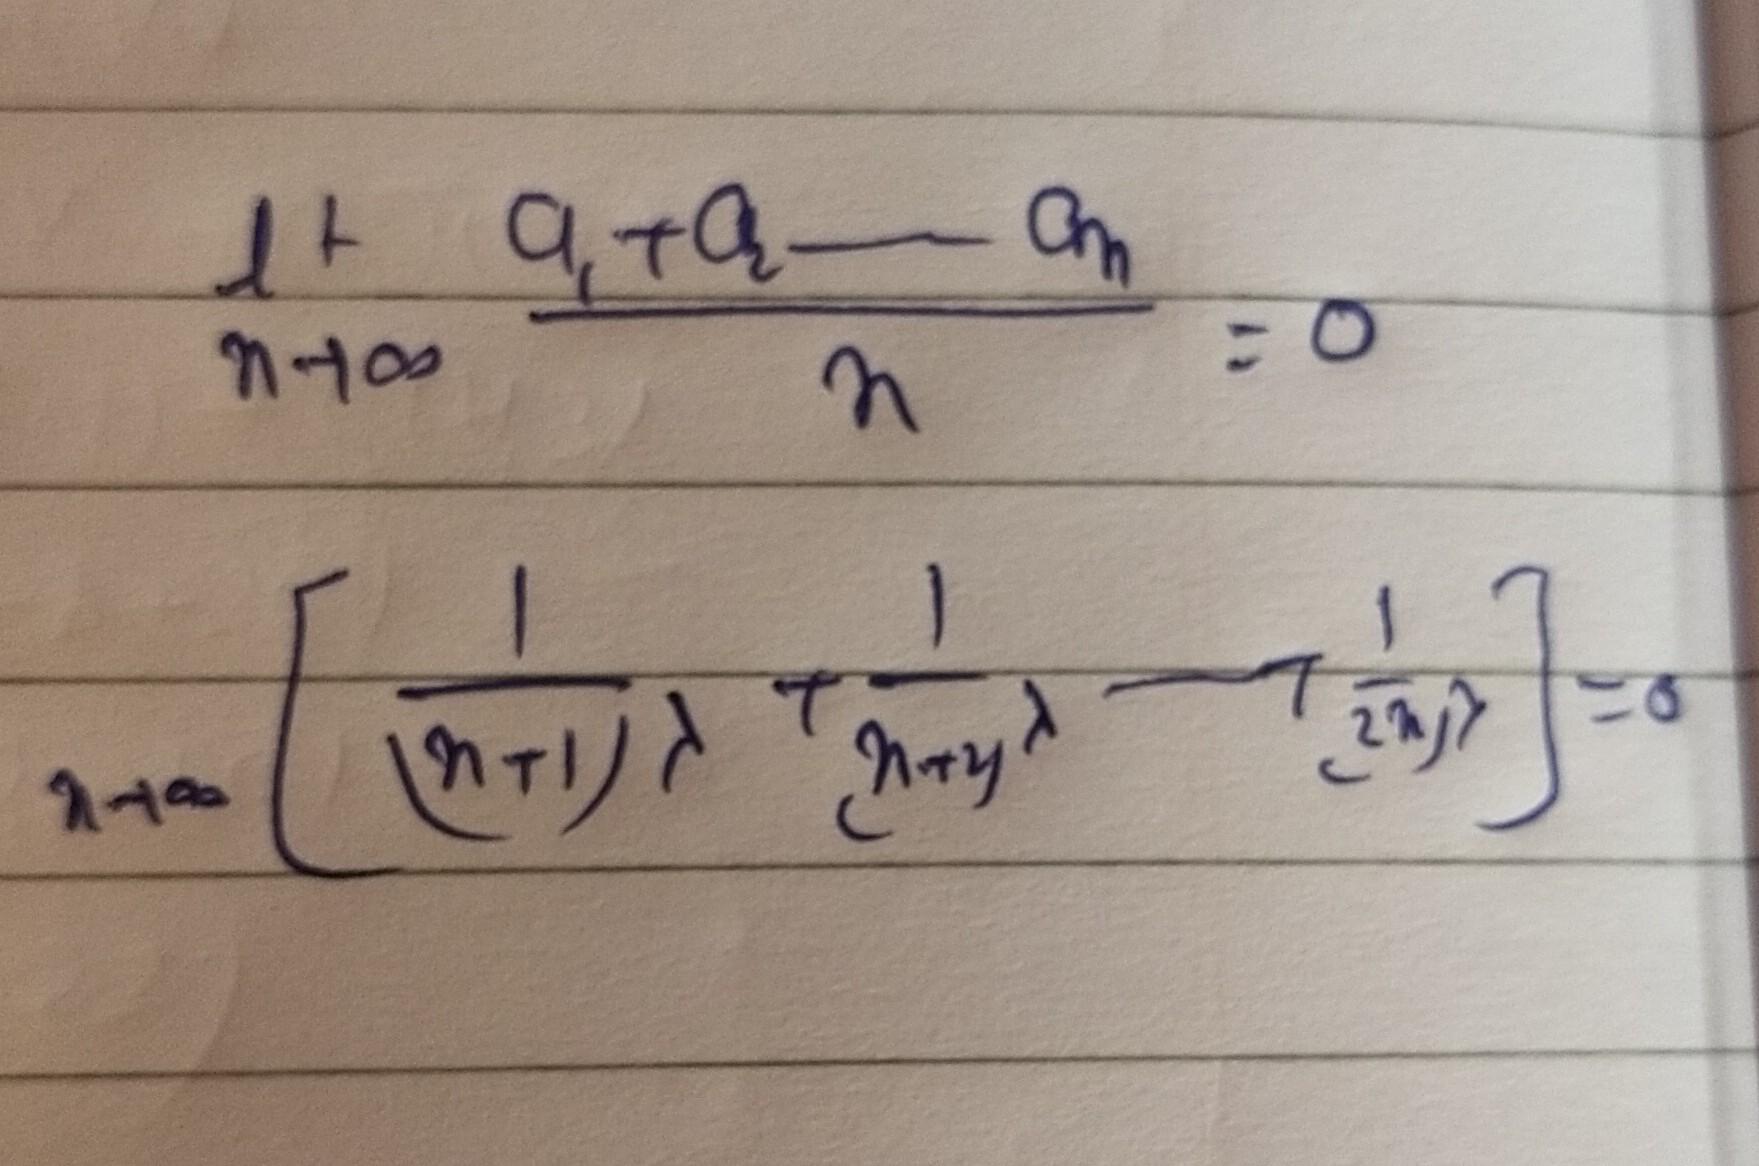 lt n→∞ (a₁+a₂ — aₙ)/n = 0
n→∞ [ 1/(n+1)^λ + 1/(n+2)^λ — + 1/(2n)^λ ] = 0